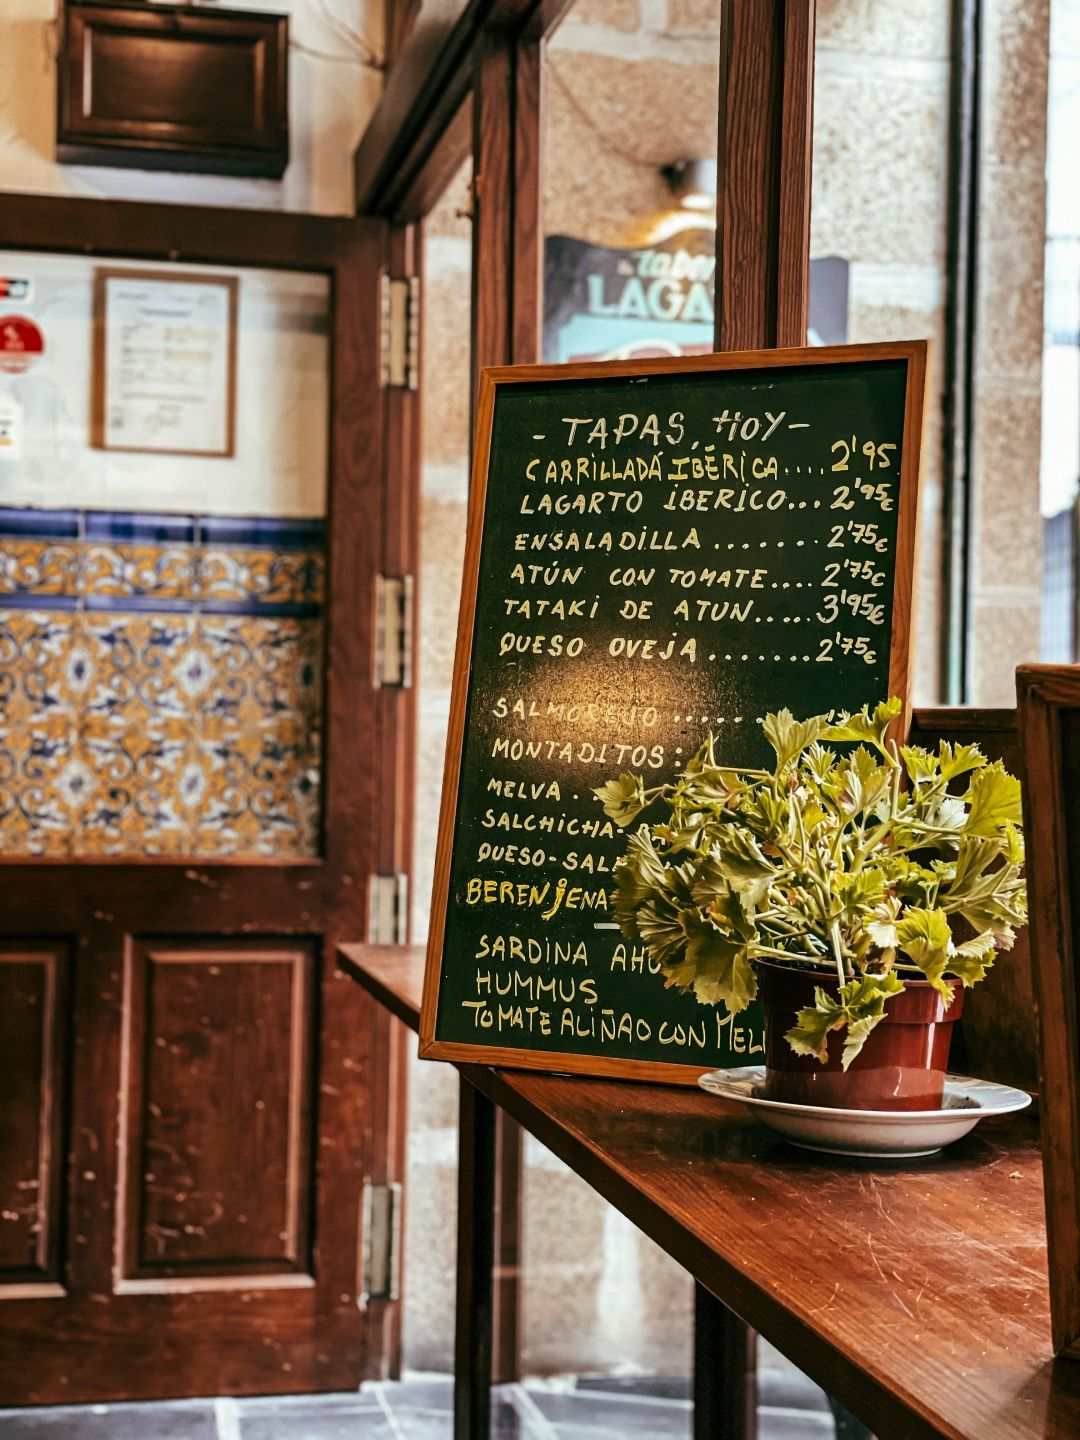 LAGA
- TAPAS, HOY -
CARRILLADA IBÉRICA.... 2'95
LAGARTO IBERICO... 2'95€
ENSALADILLA ....... 2'75€
ATÚN CON TOMATE.... 2'75€
TATAKI DE ATUN..... 3'95€
QUESO OVEJA ....... 2'75€
SALMOREJO ......
MONTADITOS:
MELVA . .
SALCHICHA-
QUESO-
BERENJENA
SARDINA
HUMMUS
TOMATE ALIÑAO CON